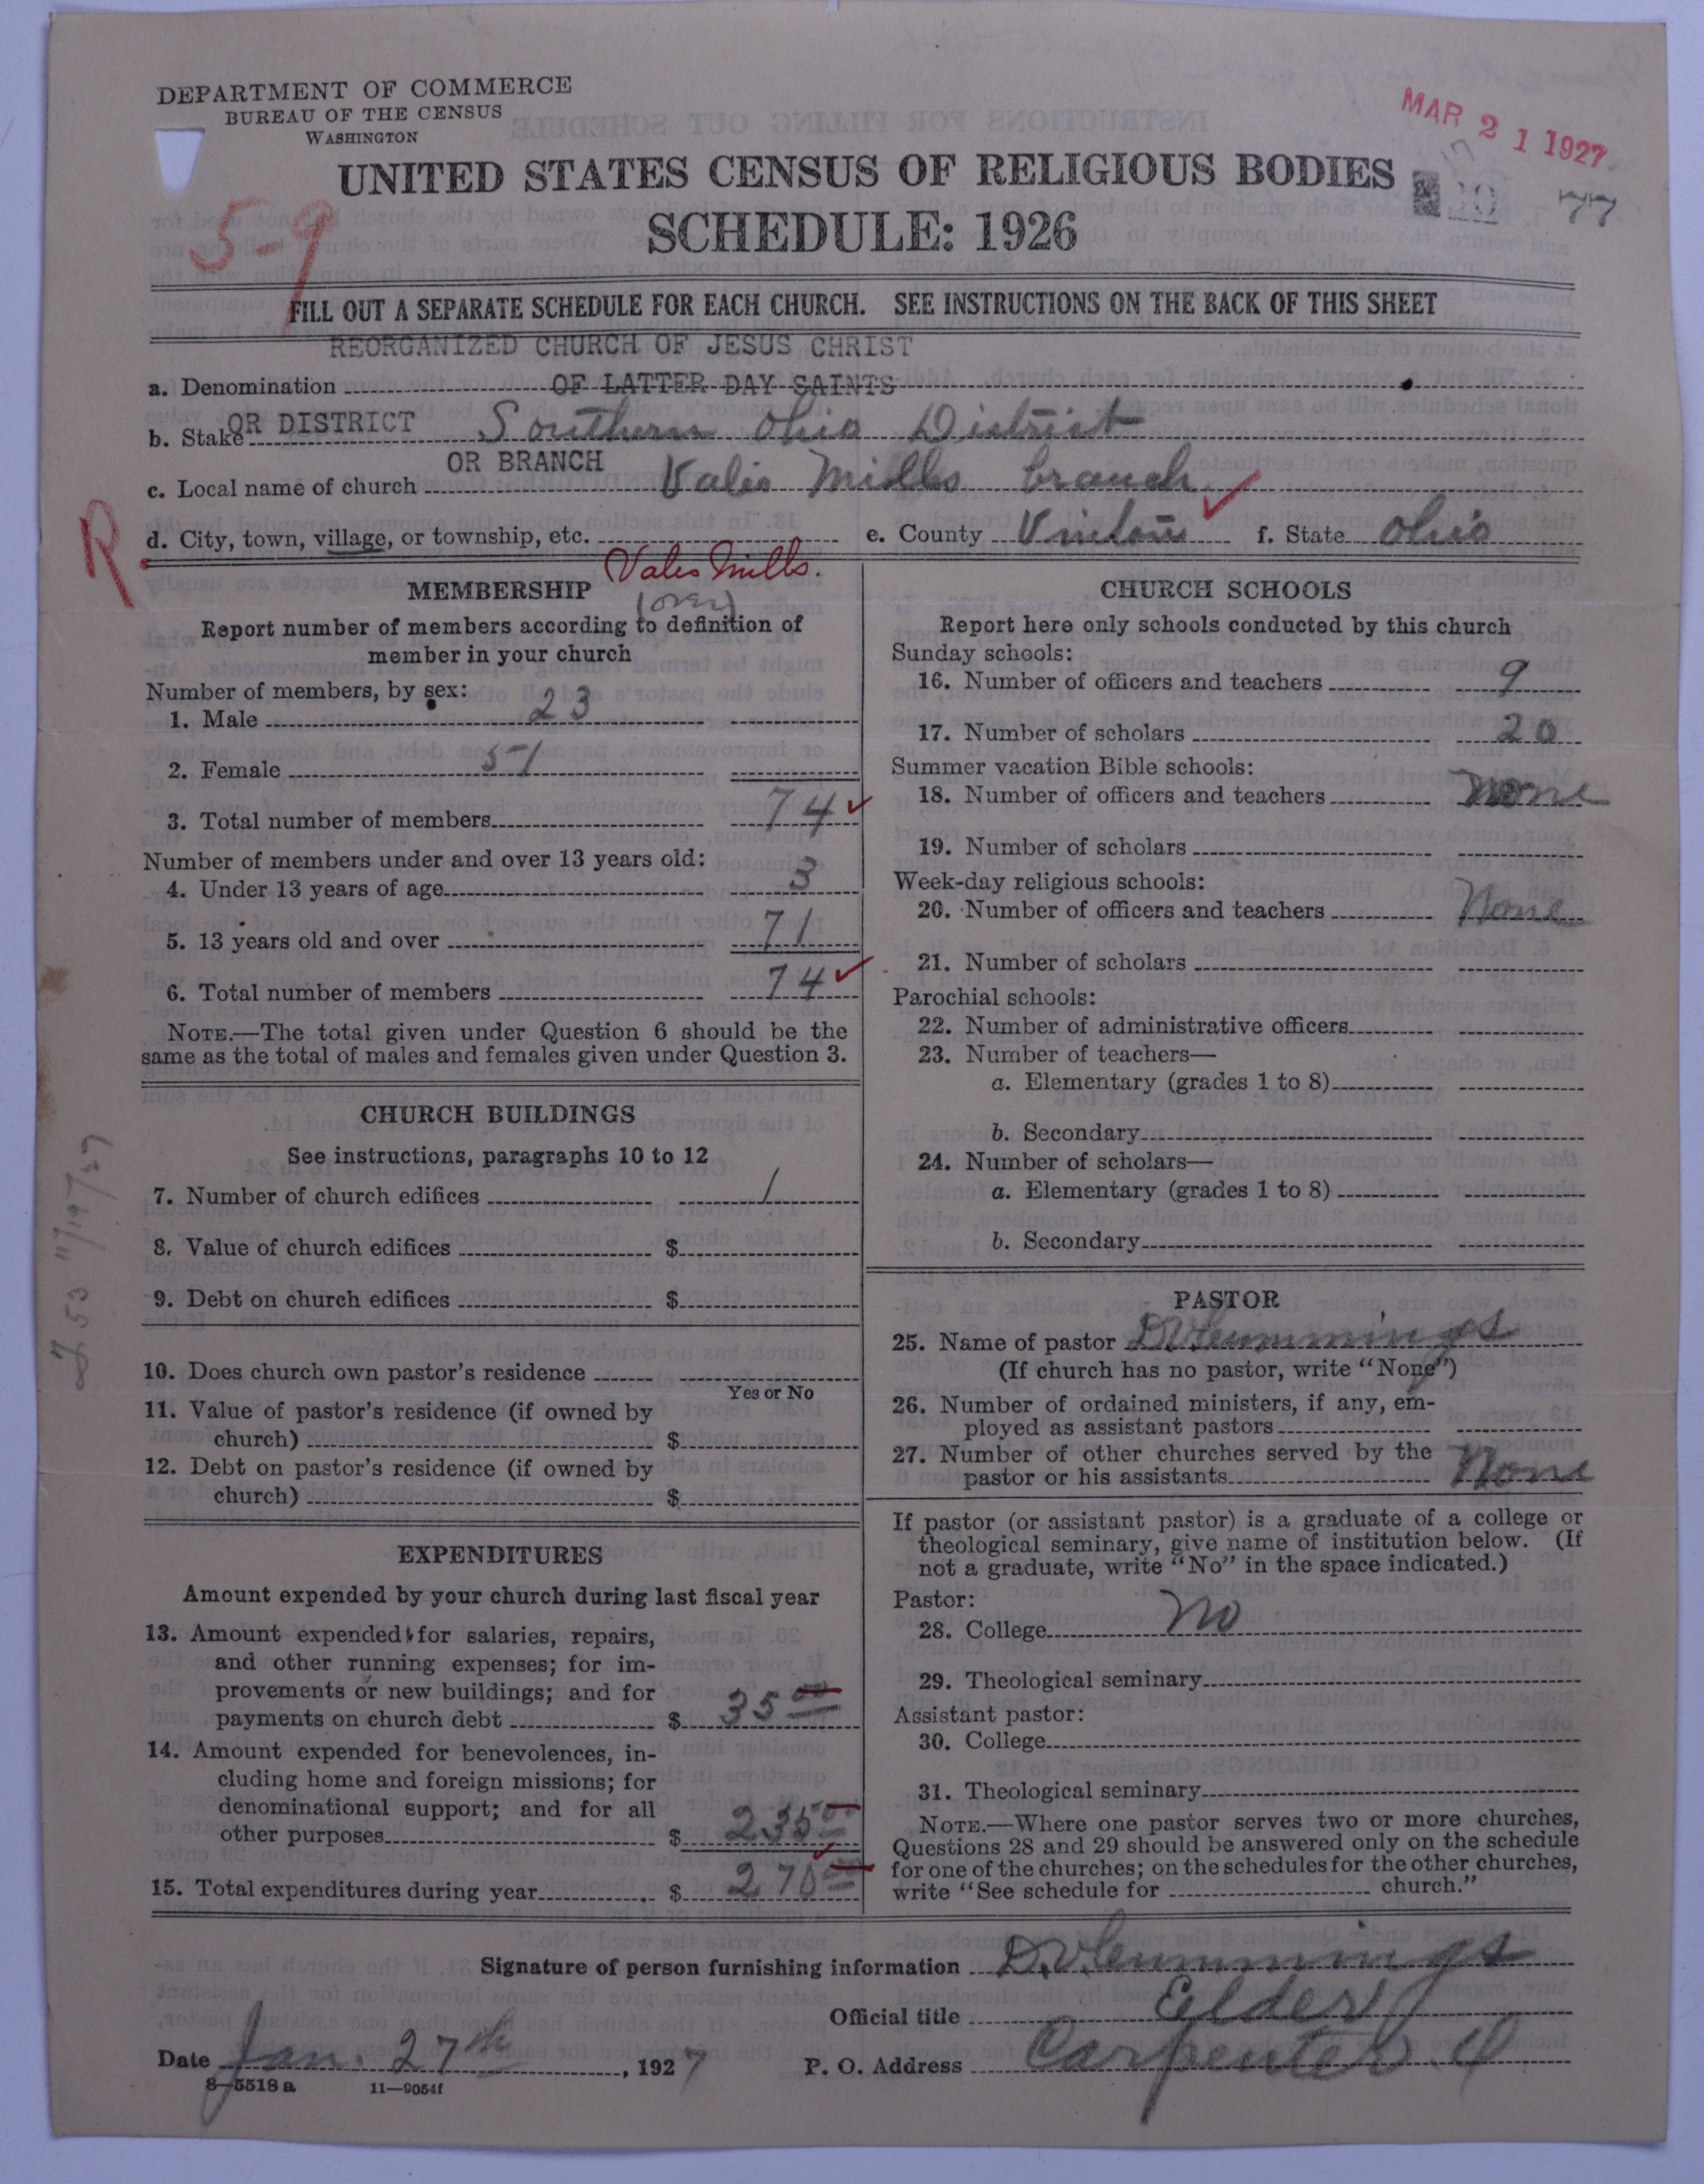 DEPARTMENT OF COMMERCE
BUREAU OF THE CENSUS
WASHINGTON
MAR 21 1927
UNITED STATES CENSUS OF RELIGIOUS BODIES
77
SCHEDULE: 1926
5-9
FILL OUT A SEPARATE SCHEDULE FOR EACH CHURCH. SEE INSTRUCTIONS ON THE BACK OF THIS SHEET
REORGANIZED CHURCH OF JESUS CHRIST
a. Denomination OF LATTER DAY SAINTS
b. Stake OR DISTRICT Southern Ohio District
OR BRANCH
c. Local name of church Vales Mills branch
R
d. City, town, village, or township, etc. Vales Mills. e. County Vinton f. State Ohio
MEMBERSHIP
(over)
Report number of members according to definition of
member in your church
Number of members, by sex:
1. Male 23
2. Female 51
3. Total number of members 74
Number of members under and over 13 years old:
4. Under 13 years of age 3
5. 13 years old and over 71
6. Total number of members 74
NOTE.—The total given under Question 6 should be the
same as the total of males and females given under Question 3.
CHURCH BUILDINGS
See instructions, paragraphs 10 to 12
7. Number of church edifices 1
8. Value of church edifices $
9. Debt on church edifices $
10. Does church own pastor's residence
Yes or No
11. Value of pastor's residence (if owned by
church) $
12. Debt on pastor's residence (if owned by
church) $
EXPENDITURES
Amount expended by your church during last fiscal year
13. Amount expended for salaries, repairs,
and other running expenses; for im-
provements or new buildings; and for
payments on church debt $ 35 00
14. Amount expended for benevolences, in-
cluding home and foreign missions; for
denominational support; and for all
other purposes $ 235 00
15. Total expenditures during year $ 270 00
CHURCH SCHOOLS
Report here only schools conducted by this church
Sunday schools:
16. Number of officers and teachers 9
17. Number of scholars 20
Summer vacation Bible schools:
18. Number of officers and teachers None
19. Number of scholars
Week-day religious schools:
20. Number of officers and teachers None
21. Number of scholars
Parochial schools:
22. Number of administrative officers
23. Number of teachers—
a. Elementary (grades 1 to 8)
b. Secondary
24. Number of scholars—
a. Elementary (grades 1 to 8)
b. Secondary
PASTOR
25. Name of pastor D.V. Cummings
(If church has no pastor, write "None")
26. Number of ordained ministers, if any, em-
ployed as assistant pastors
27. Number of other churches served by the
pastor or his assistants None
If pastor (or assistant pastor) is a graduate of a college or
theological seminary, give name of institution below. (If
not a graduate, write "No" in the space indicated.)
Pastor:
28. College No
29. Theological seminary
Assistant pastor:
30. College
31. Theological seminary
NOTE.—Where one pastor serves two or more churches,
Questions 28 and 29 should be answered only on the schedule
for one of the churches; on the schedules for the other churches,
write "See schedule for church."
Signature of person furnishing information D.V. Cummings
Official title Elder
Date Jan. 27th, 1927 P. O. Address Carpenter O
8—5518 a 11—9054f